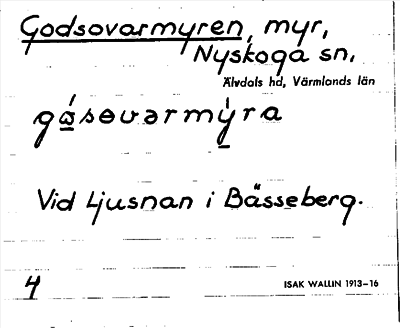 Godsovarmyren, myr,
Nyskoga sn,
Älvdals hd, Värmlands län
gásovarmýra
Vid Ljusnan i Bässeberg.
4
ISAK WALLIN 1913–16